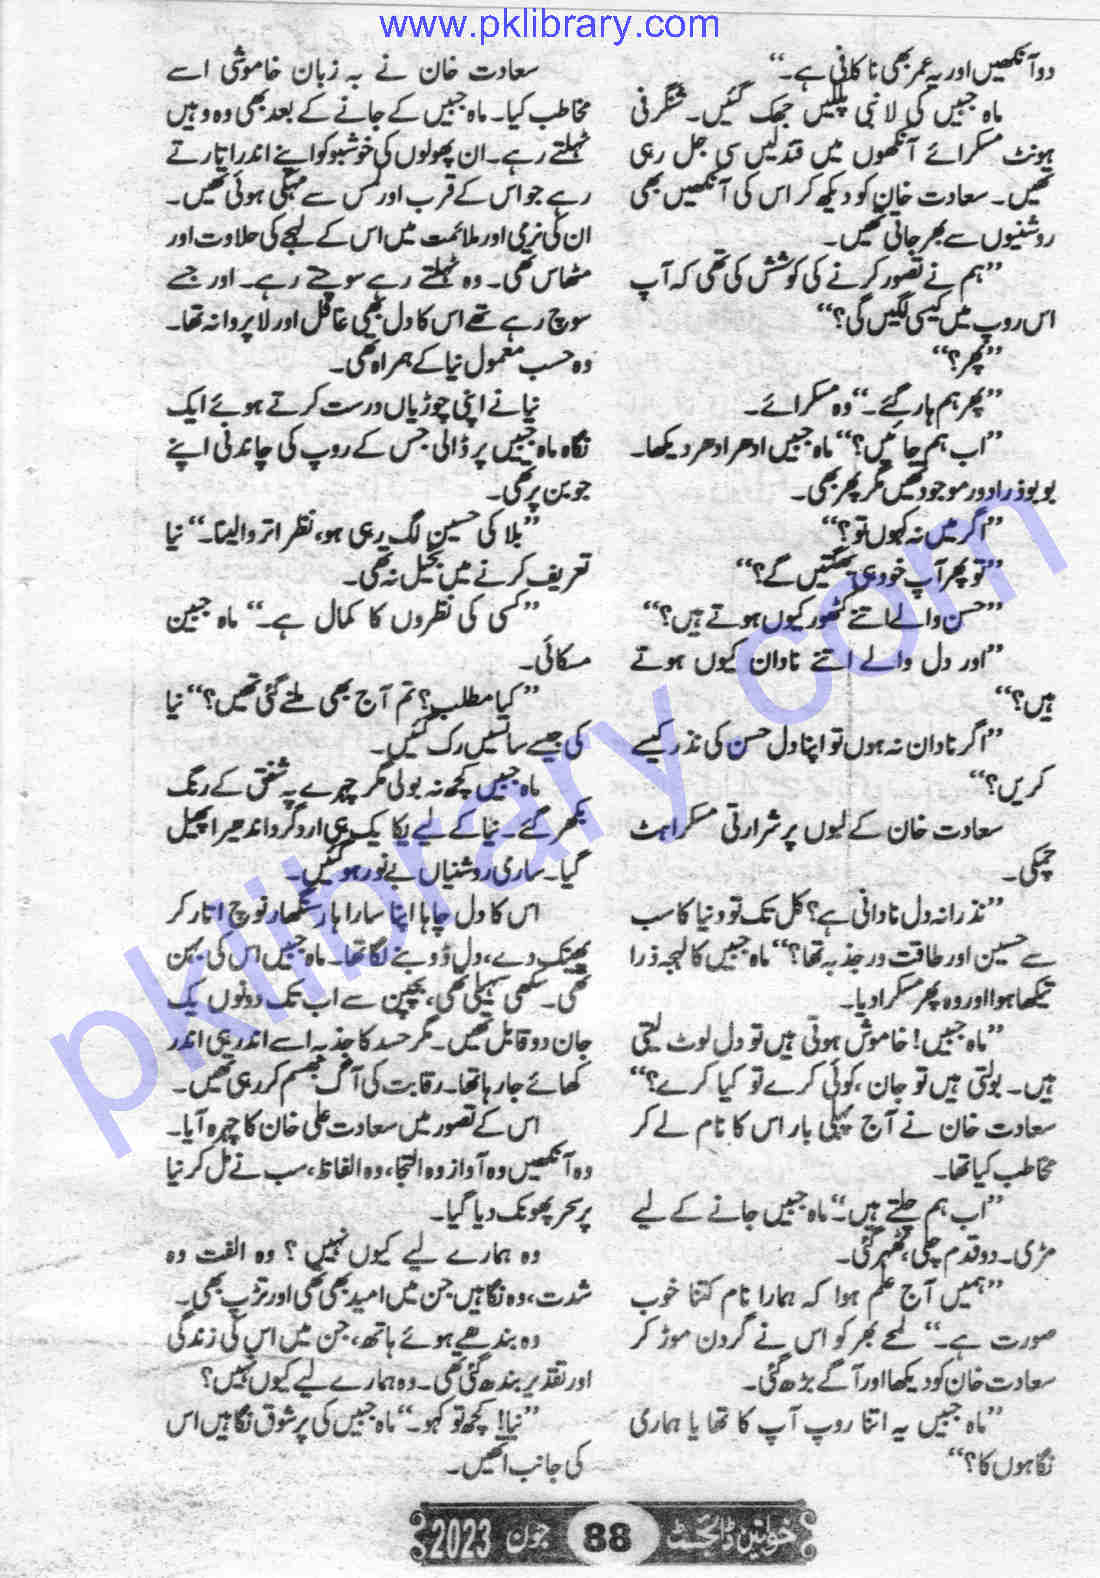 www.pklibrary.com
دو آنکھیں اور یہ عمر بھی ناکافی ہے۔‘‘
ماہ جبیں کی لانبی پلکیں جھک گئیں۔ شنگرفی
ہونٹ مسکرائے آنکھوں میں قندلیں سی جل رہی
تھیں۔ سعادت خان کو دیکھ کر اس کی آنکھیں بھی
روشنیوں سے بھر جاتی تھیں۔
’’ہم نے تصور کرنے کی کوشش کی تھی کہ آپ
اس روپ میں کیسی لگیں گی؟‘‘
’’پھر؟‘‘
’’پھر ہم ہار گئے۔‘‘ وہ مسکرائے۔
’’اب ہم جائیں؟‘‘ ماہ جبیں ادھر ادھر دیکھا۔
بوبو ذرا دور موجود تھیں مگر پھر بھی۔
’’اگر میں نہ کہوں تو؟‘‘
’’تو پھر آپ خود ہی بھگتیں گے؟‘‘
’’حسن والے اتنے کٹھور کیوں ہوتے ہیں؟‘‘
’’اور دل والے اتنے نادان کیوں ہوتے
ہیں؟‘‘
’’اگر نادان نہ ہوں تو اپنا دل حسن کی نذر کیسے
کریں؟‘‘
سعادت خان کے لبوں پر شرارتی مسکراہٹ
چمکی۔
’’نذرانہ دل نادانی ہے؟ کل تک تو دنیا کا سب
سے حسین اور طاقت ور جذبہ تھا؟‘‘ ماہ جبیں کا لہجہ ذرا
تیکھا ہوا اور وہ پھر مسکرا دیا۔
’’ماہ جبیں! خاموش ہوتی ہیں تو دل لوٹ لیتی
ہیں۔ بولتی ہیں تو جان، کوئی کرے تو کیا کرے؟‘‘
سعادت خان نے آج پہلی بار اس کا نام لے کر
مخاطب کیا تھا۔
’’اب ہم چلتے ہیں۔‘‘ ماہ جبیں جانے کے لیے
مڑی۔ دو قدم چلی، ٹھہر گئی۔
’’ہمیں آج علم ہوا کہ ہمارا نام کتنا خوب
صورت ہے۔‘‘ لمحے بھر کو اس نے گردن موڑ کر
سعادت خان کو دیکھا اور آگے بڑھ گئی۔
’’ماہ جبیں یہ اتنا روپ آپ کا تھا یا ہماری
نگاہوں کا؟‘‘
سعادت خان نے بہ زبان خاموشی اسے
مخاطب کیا۔ ماہ جبیں کے جانے کے بعد بھی وہ وہیں
ٹہلتے رہے۔ ان پھولوں کی خوشبو کو اپنے اندر اتارتے
رہے جو اس کے قرب اور لمس سے مہکی ہوئی تھیں۔
ان کی نرمی اور ملائمت میں اس کے لہجے کی حلاوت اور
مٹھاس تھی۔ وہ ٹہلتے رہے سوچتے رہے۔ اور جسے
سوچ رہے تھے اس کا دل بھی غافل اور لاپروا نہ تھا۔
وہ حسب معمول نیا کے ہمراہ تھی۔
نیا نے اپنی چوڑیاں درست کرتے ہوئے ایک
نگاہ ماہ جبیں پر ڈالی جس کے روپ کی چاندنی اپنے
جوبن پر تھی۔
’’بلا کی حسین لگ رہی ہو، نظر اتروا لینا۔‘‘ نیا
تعریف کرنے میں بخیل نہ تھی۔
’’کسی کی نظروں کا کمال ہے۔‘‘ ماہ جبین
مسکائی۔
’’کیا مطلب؟ تم آج بھی ملنے گئی تھیں؟‘‘ نیا
کی جیسے سانسیں رک گئیں۔
ماہ جبیں کچھ نہ بولی مگر چہرے پہ شفق کے رنگ
بکھر گئے۔ نیا کے لیے یکا یک ہی ارد گرد اندھیرا پھیل
گیا۔ ساری روشنیاں بے نور ہو گئیں۔
اس کا دل چاہا اپنا سارا ہار سنگھار نوچ اتار کر
پھینک دے، دل ڈوبنے لگا تھا۔ ماہ جبیں اس کی بہن
تھی۔ سکھی سہیلی تھی، بچپن سے اب تک دونوں یک
جان دو قابل تھیں۔ مگر حسد کا جذبہ اسے اندر ہی اندر
کھائے جا رہا تھا۔ رقابت کی آگ بھسم کر رہی تھیں۔
اس کے تصور میں سعادت علی خان کا چہرہ آیا۔
وہ آنکھیں وہ آواز وہ التجا، وہ الفاظ، سب نے مل کر نیا
پر سحر پھونک دیا گیا۔
وہ ہمارے لیے کیوں نہیں؟ وہ الفت وہ
شدت، وہ نگاہیں جن میں امید بھی تھی اور تڑپ بھی۔
وہ بندھے ہوئے ہاتھ، جن میں اس کی زندگی
اور تقدیر بندھ گئی تھی۔ وہ ہمارے لیے کیوں نہیں؟
’’نیا! کچھ تو کہو۔‘‘ ماہ جبیں کی پرشوق نگاہیں اس
کی جانب اٹھیں۔
خواتین ڈائجسٹ 88 جون 2023
pklibrary.com